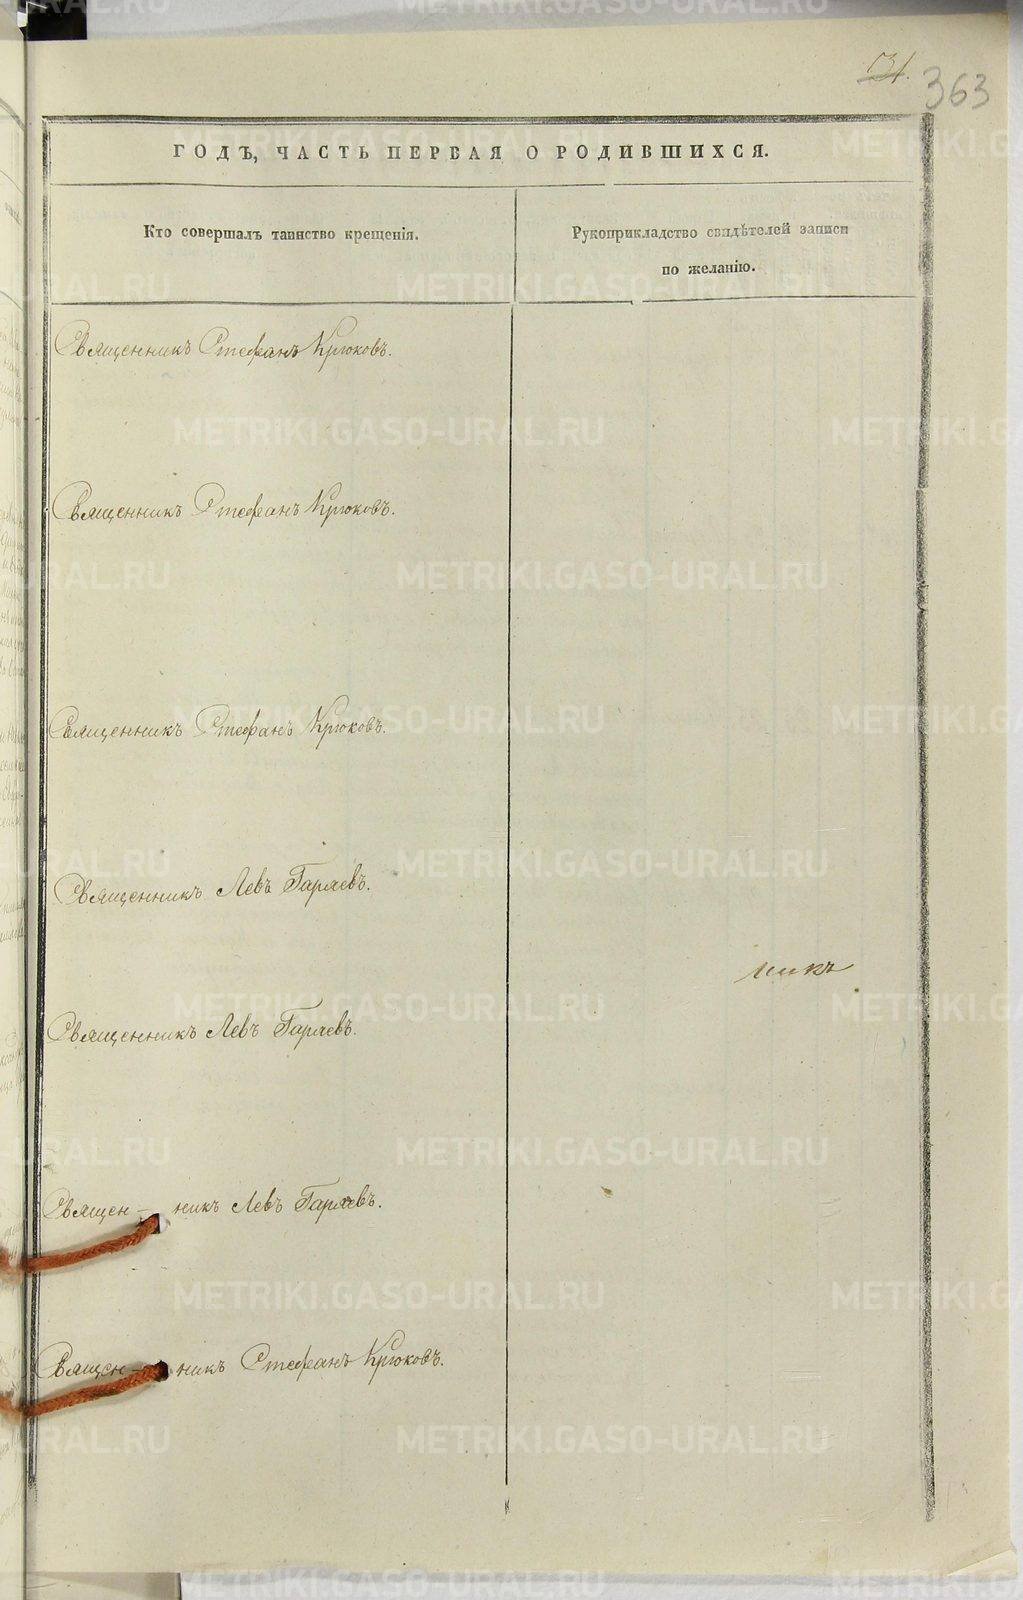 31.
363
ГОДЪ, ЧАСТЬ ПЕРВАЯ О РОДИВШИХСЯ.
Кто совершалъ таинство крещенія.
Рукоприкладство свидѣтелей записи
по желанію.
Священникъ Стефанъ Крюковъ.
Священникъ Стефанъ Крюковъ.
Священникъ Стефанъ Крюковъ.
Священникъ Левъ Гаряевъ.
никъ
Священникъ Левъ Гаряевъ.
Священ- никъ Левъ Гаряевъ.
Священ- никъ Стефанъ Крюковъ.
METRIKI.GASO-URAL.RU